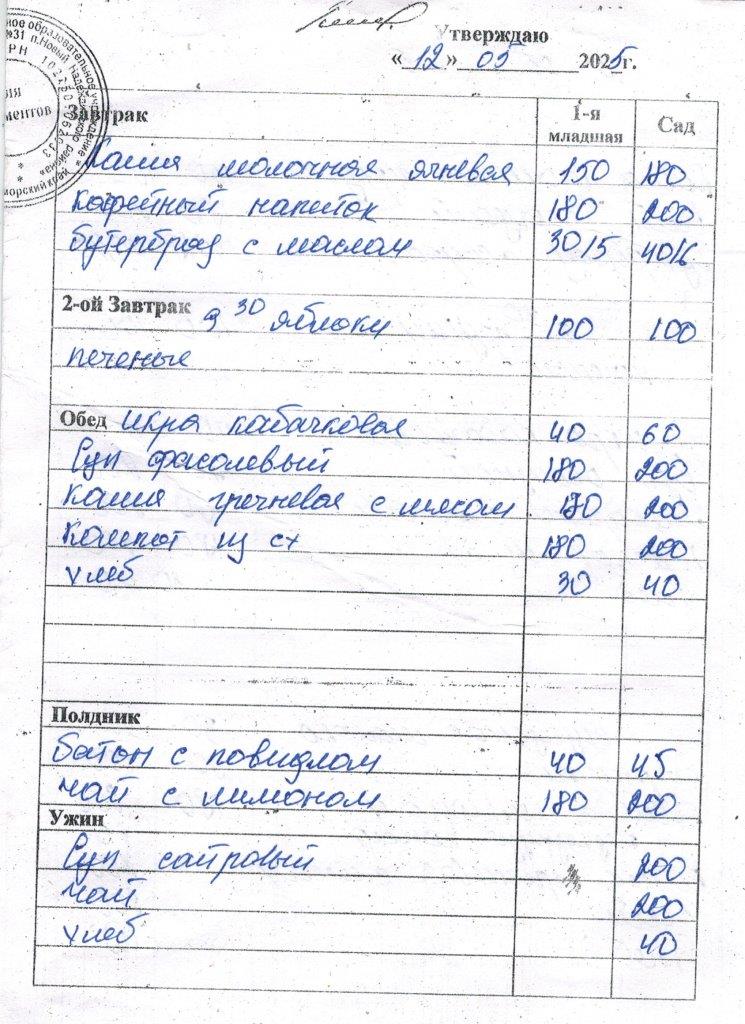 Утверждаю
«12» 05 2025г.
Завтрак 1-я младшая Сад
Каша молочная ячневая 150 180
Кофейный напиток 180 200
бутерброд с маслом 30/5 40/6
2-ой Завтрак 9 30 яблоки 100 100
печенье
Обед Икра кабачковая 40 60
Суп фасолевый 180 200
Каша гречневая с мясом 170 200
Компот из сх 180 200
хлеб 30 40
Полдник
батон с повидлом 40 45
чай с лимоном 180 200
Ужин
Суп сайровый 200
чай 200
хлеб 40